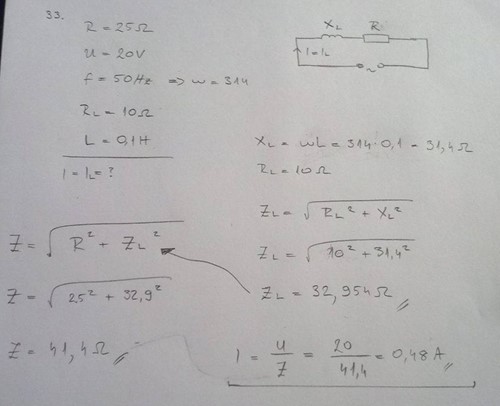 33.
R = 25Ω
U = 20V
f = 50Hz => ω = 314
R_L = 10Ω
L = 0,1H
I = I_L = ?
X_L R
I = I_L
~
X_L = ωL = 314·0,1 = 31,4Ω
R_L = 10Ω
Z_L = √(R_L² + X_L²)
Z_L = √(10² + 31,4²)
Z_L = 32,954Ω
Z = √(R² + Z_L²)
Z = √(25² + 32,9²)
Z = 41,4Ω
I = U/Z = 20/41,4 = 0,48A